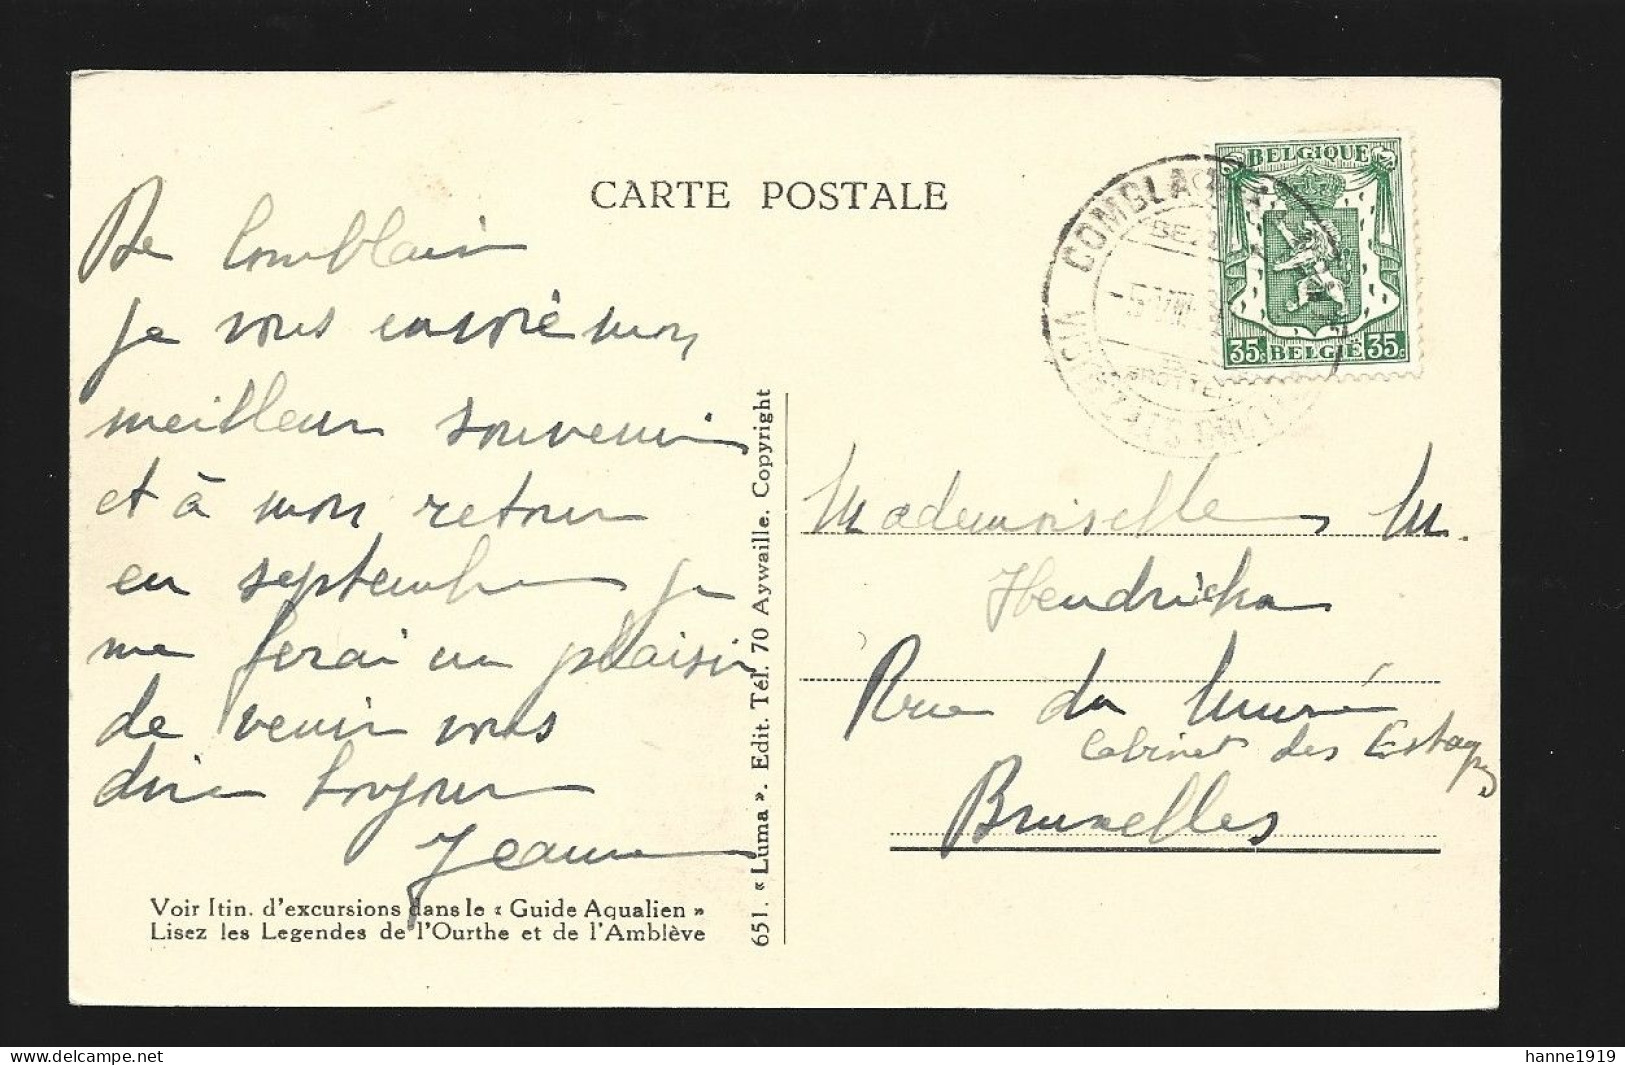 CARTE POSTALE
De Comblain
je vous envoie mon
meilleur souvenir
et à mon retour
en septembre je
me ferai un plaisir
de venir vous
dire bonjour
Jeanne
Voir Itin. d'excursions dans le « Guide Aqualien »
Lisez les Legendes de l'Ourthe et de l'Amblève
651. « Luma ». Edit. Tél. 70 Aywaille. Copyright
BELGIQUE
35c BELGIË 35c
COMBLA
VISI
GROTTE
Mademoiselle M.
Hendrickx
Rue du Musée
Cabinet des Estampes
Bruxelles
hanne1919